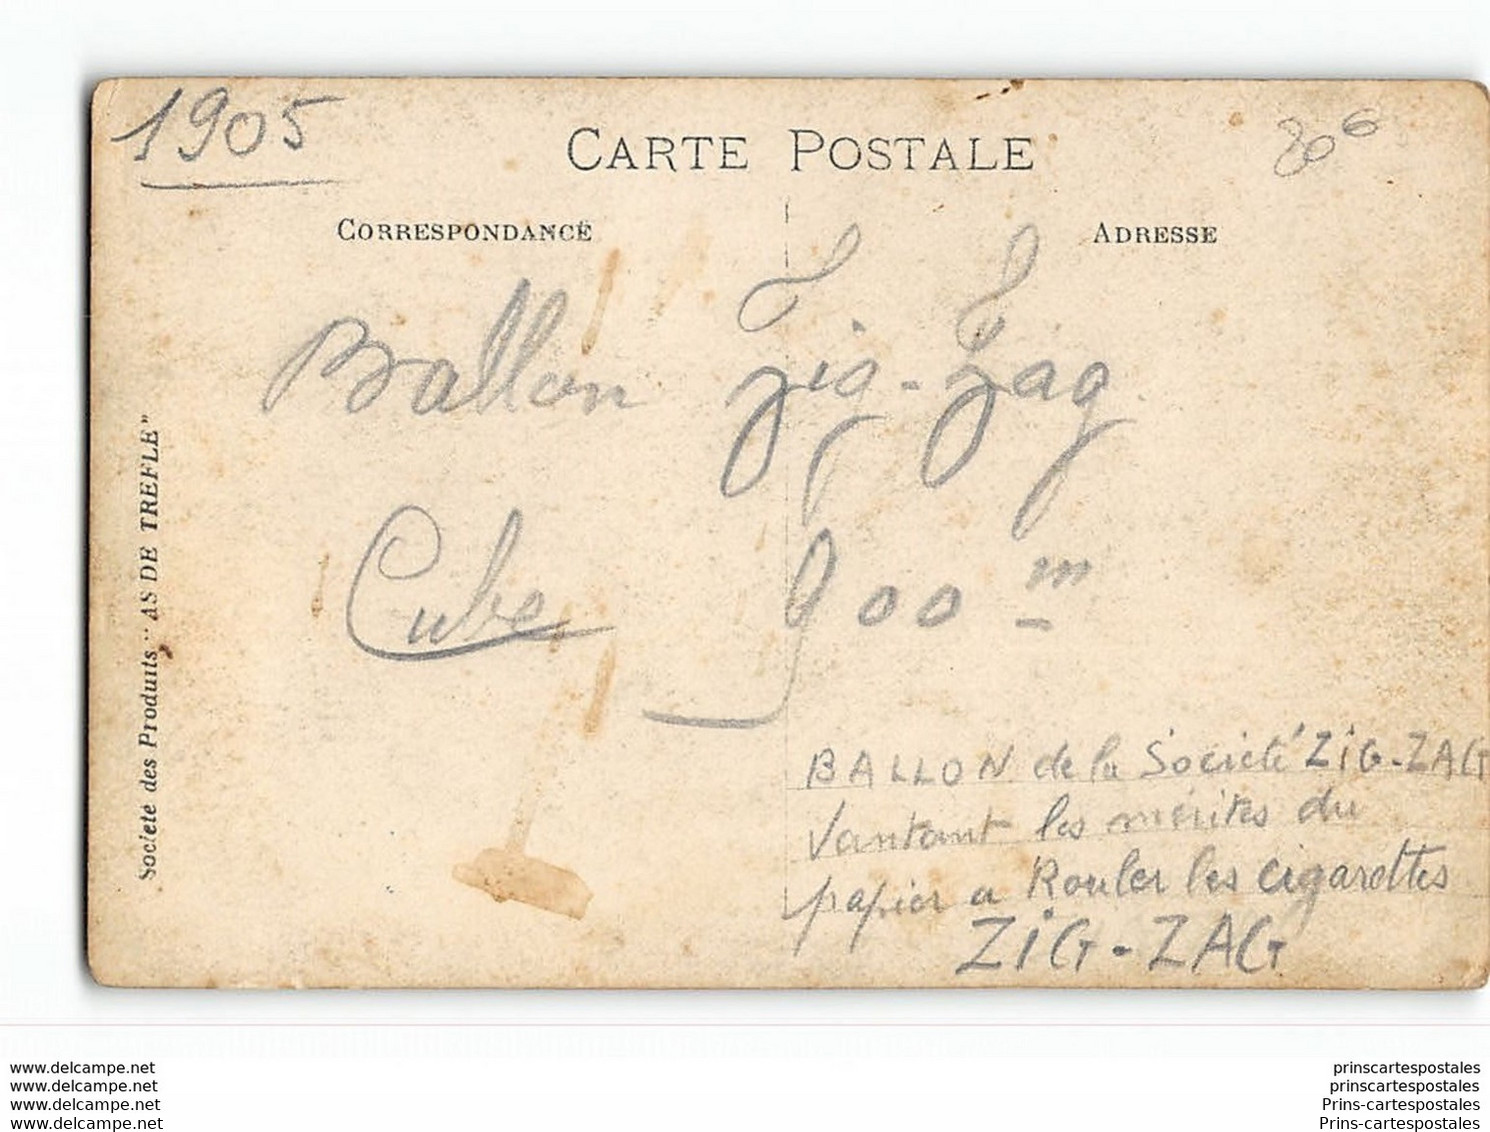 1905
CARTE POSTALE
CORRESPONDANCE
ADRESSE
Ballon Zig-Zag
Cube 900 m
Société des Produits "AS DE TREFLE"
BALLON de la Société ZiG-ZAG
Vantant les mérites du
papier a Rouler les cigarettes
ZiG-ZAG
www.delcampe.net
www.delcampe.net
www.delcampe.net
www.delcampe.net
prinscartespostales
prinscartespostales
Prins-cartespostales
Prins-cartespostales